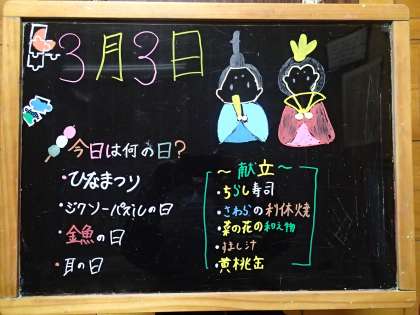 3月3日
今日は何の日?
・ひなまつり
・ジグソーパズルの日
・金魚の日
・耳の日
～献立～
・ちらし寿司
・さわらの利休焼
・菜の花の和え物
・すまし汁
・黄桃缶